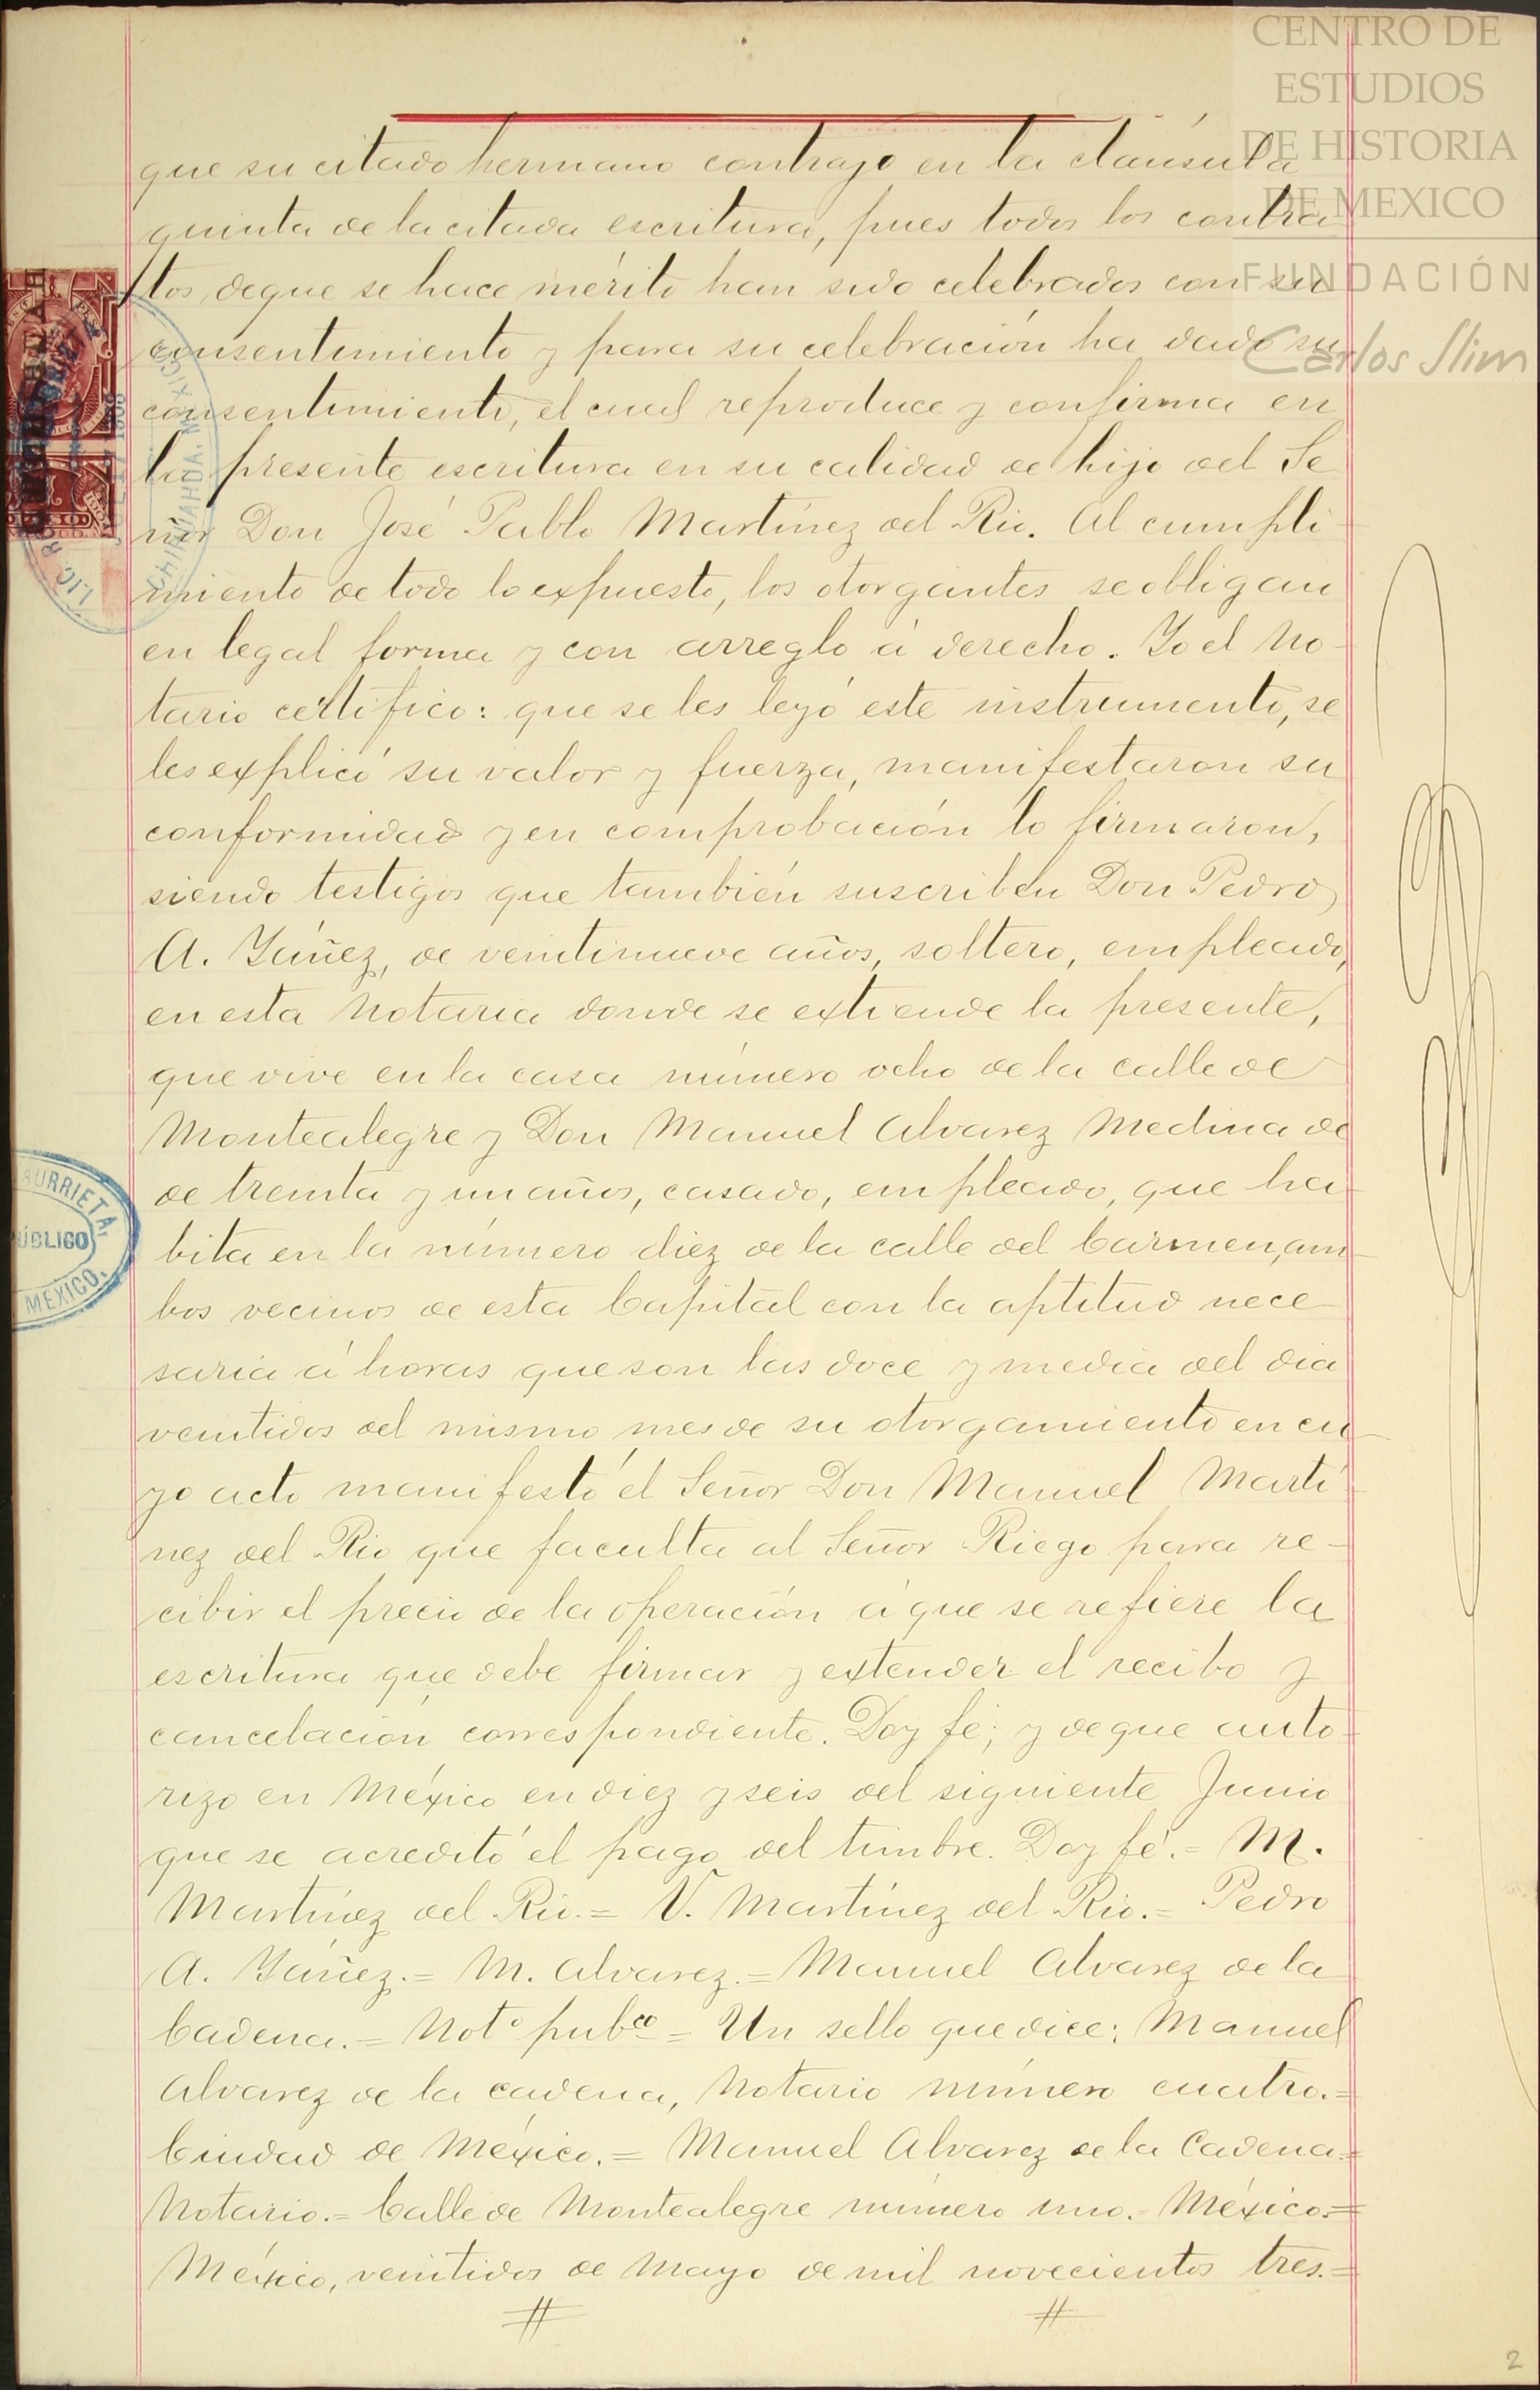 CENTRO DE
ESTUDIOS
DE HISTORIA
DE MEXICO
FUNDACIÓN
Carlos Slim
que su citado hermano contrajo en la cláusula
quinta de la citada escritura, pues todos los contra
tos de que se hace mérito han sido celebrados con su
consentimiento y para su celebración ha dado su
consentimiento, el cual reproduce y confirma en
la presente escritura en su calidad de hijo del Se
ñor Don José Pablo Martínez del Rio. Al cumpli-
miento de todo lo expuesto, los otorgantes se obligan
en legal forma y con arreglo á derecho. Yo el No-
tario certifico: que se les leyó este instrumento, se
les explicó su valor y fuerza, manifestaron su
conformidad y en comprobación lo firmaron,
siendo testigos que también suscriben Don Pedro
A. Yáñez, de veintinueve años, soltero, empleado,
en esta Notaria donde se extiende la presente,
que vive en la casa número ocho de la calle de
Montealegre y Don Manuel Alvarez Medina de
de treinta y un años, casado, empleado, que ha-
bita en la número diez de la calle del Carmen, am-
bos vecinos de esta Capital con la aptitud nece-
saria á horas que son las doce y media del dia
veintidos del mismo mes de su otorgamiento en cu-
yo acto manifestó el Señor Don Manuel Martí
nez del Rio que faculta al Señor Riego para re-
cibir el precio de la operación á que se refiere la
escritura que debe firmar y extender el recibo y
cancelación correspondiente. Doy fé; y de que auto-
rizo en México en diez y seis del siguiente Junio
que se acreditó el pago del timbre. Doy fé.= M.
Martínez del Rio.= V. Martínez del Rio.= Pedro
A. Yáñez.= M. Alvarez.= Manuel Alvarez de la
Cadena.= Not° pubco = Un sello que dice: Manuel
Alvarez de la Cadena, Notario número cuatro.=
Ciudad de México.= Manuel Alvarez de la Cadena=
Notario.= Calle de Montealegre número uno.- México.=
México, veintidos de Mayo de mil novecientos tres.=
AURRIETA
PÚBLICO
MEXICO.
LIC. R
CHIHUAHUA, MEXICO
2